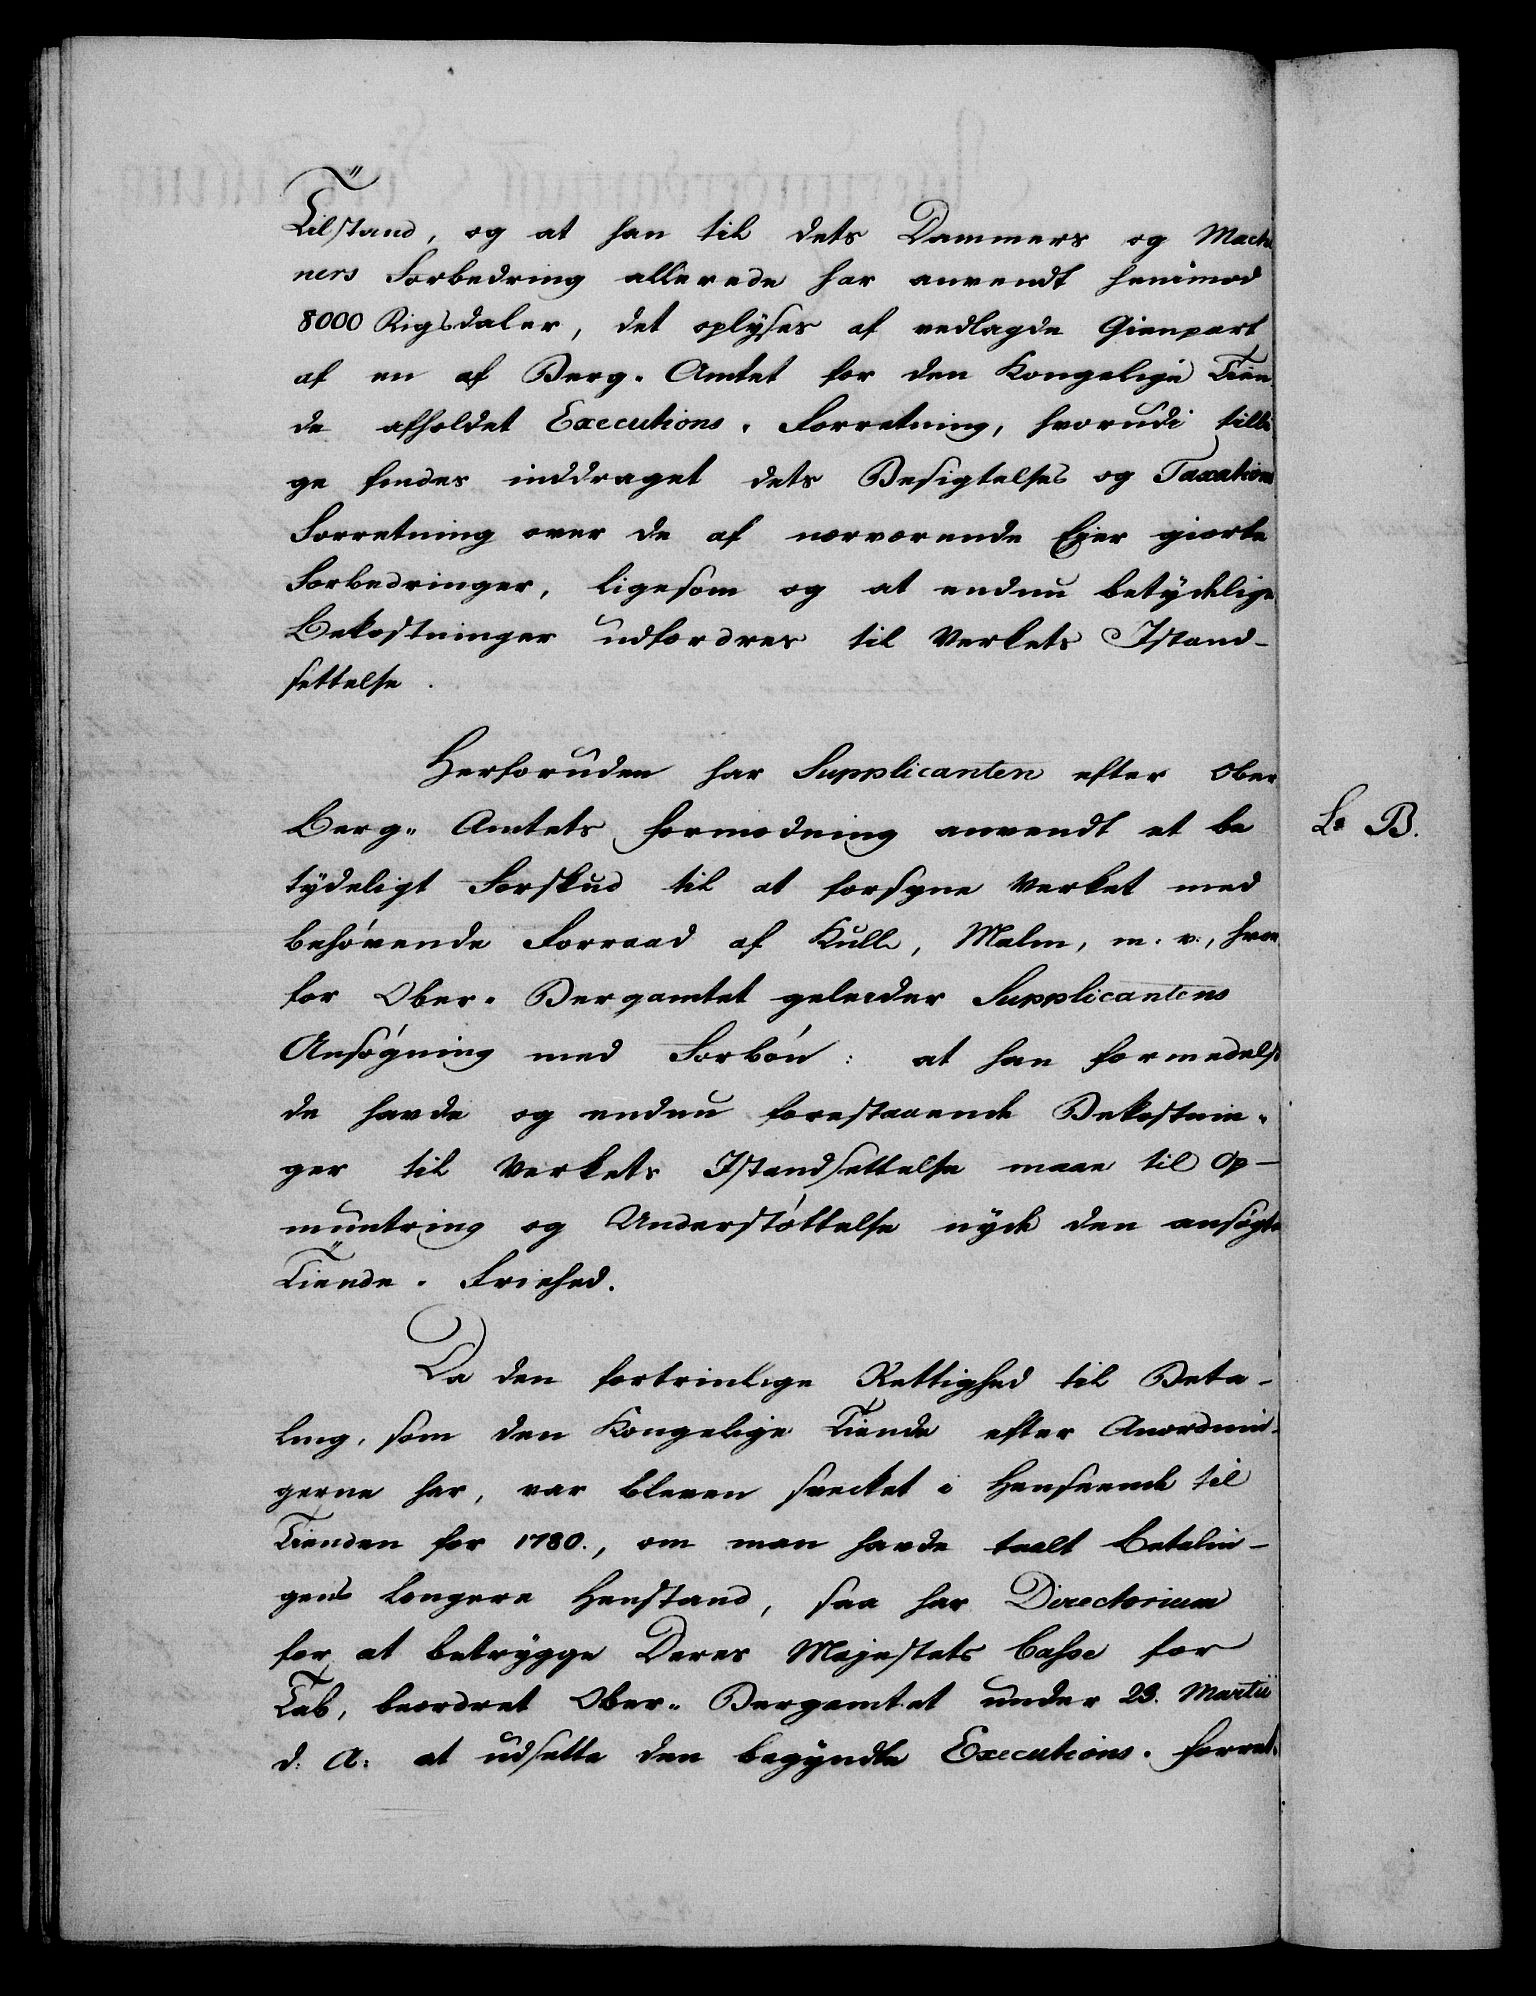 Tilstand, og at han til dets Dammers og Machi
ners Forbedring allerede har anvendt henimod
8000 Rigsdaler, det oplyses af vedlagde Gienpart
af en af Berg-Amtet for den Kongelige Tien
de afholdet Executions-Forretning, hvorudi tilli
ge findes inddraget dets Besigtelses og Taxations
Forretning over de af nærværende Ejer giorte
Forbedringer, ligesom og at endnu betydelige
Bekostninger udfordres til Verkets Istand-
settelse.
Herforuden har Supplicanten efter Ober
Berg-Amtets formodning anvendt et be
tydeligt Forskud til at forsyne Verket med
behøvende Forraad af Kull, Malm, m. v., hvor
for Ober-Bergamtet geleider Supplicantens
Ansøgning med Forbøn: at han formedelst
de havde og endnu forestaaende Bekostnin-
ger til Verkets Istandsettelse maae til Op-
muntring og Understøttelse nyde den ansøgte
Tiende-Friehed.
Da den fortrinlige Rettighed til Beta-
ling, som den Kongelige Tiende efter Anordnin-
gerne har, var bleven svecket i Henseende til
Tienden for 1780., om man havde taalt Betalin-
gens længere Henstand, saa har Directorium
for at betrygge Deres Majestets Casse for
Tab, beordret Ober-Bergamtet under 23. Martii
d: A: at udsette den begyndte Executions-Forret-
L: B.